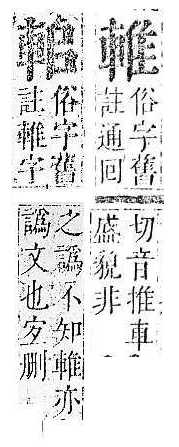 俗字舊
註通回
切音推車
盛貌非
俗字舊
註字
之譌不知亦
譌文也宐删